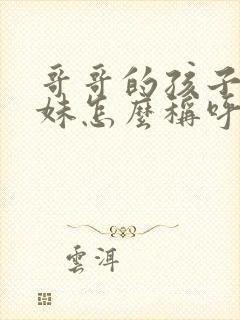 哥哥的孩子
妹怎麼稱呼
雲洱